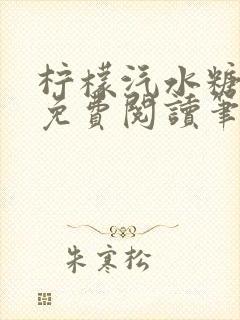 柠檬汽水糖
免費閱讀筆
朱寒松